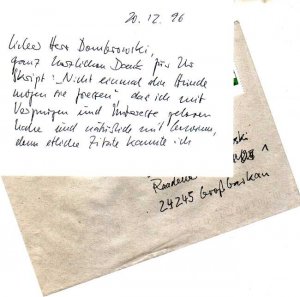 20.12.96
Lieber Herr Dombrowski,
ganz herzlichen Dank für Ihr
Skript: "Nicht einmal die Hunde
mögen sie fressen" das ich mit
Vergnügen und Interesse gelesen
habe und natürlich mit
denn etliche Zitate kannte ich
ski
1
24245 Großbarkau